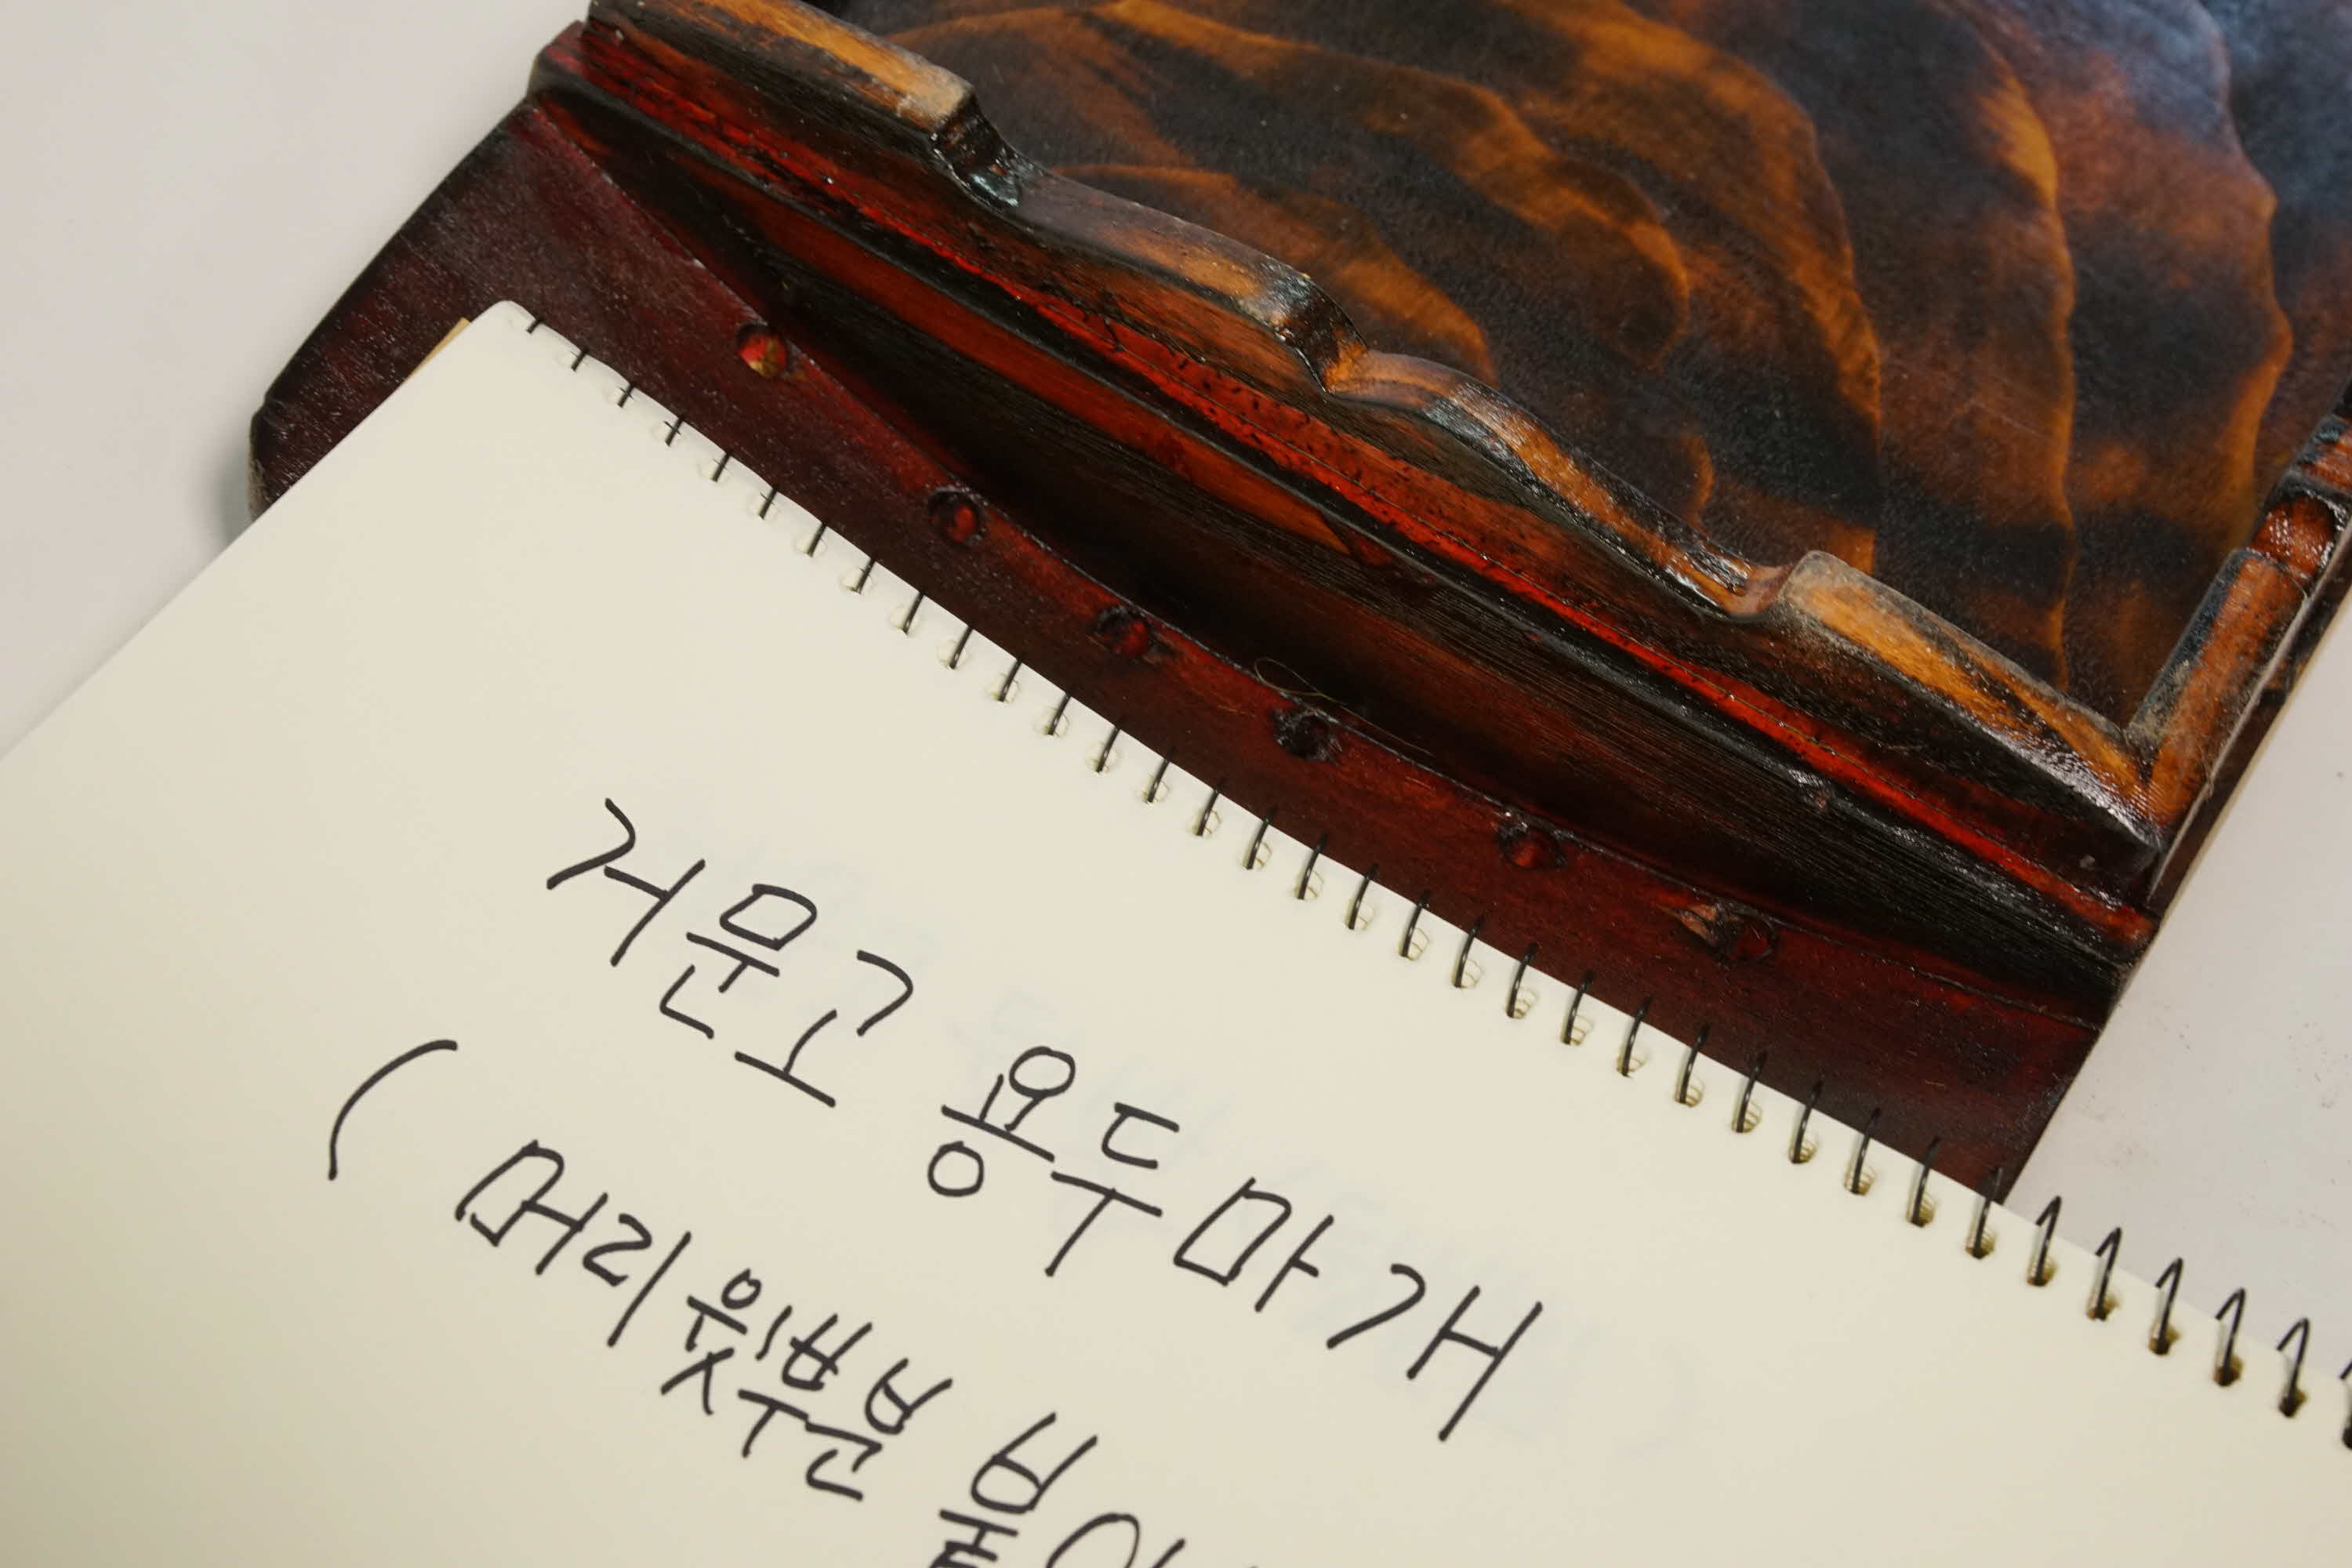 거문고 용두마개
( 머리 윗부분